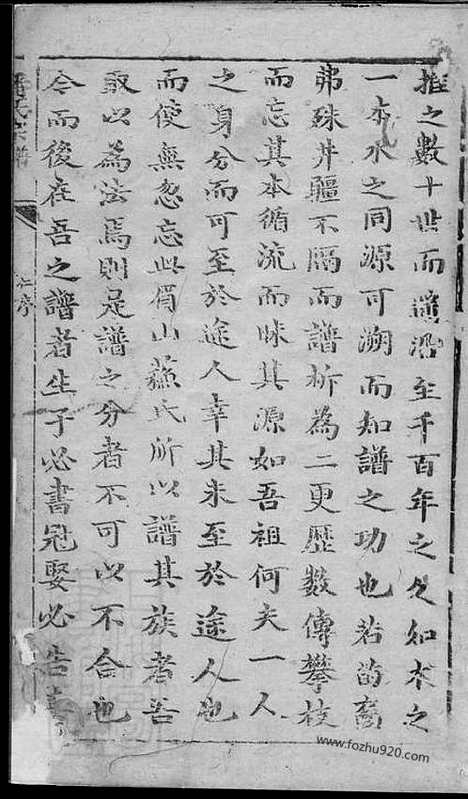 推之數十世而遞沿至千百年之久如木之
一本水之同源可溯而知譜之功也若的裔
弗殊井疆不隔而譜析為二更歷數傳攀枝
而忘其本循流而昧其源如吾祖何夫一人
之身分而可至於途人幸其未至於途人也
而使無忽忘此眉山蘇氏所以譜其族者吾
取以為法焉則是譜之分者不可以不合也
今而後在吾之譜者生子必書冠娶必告
氏宗譜
序
www.fozhu920.com